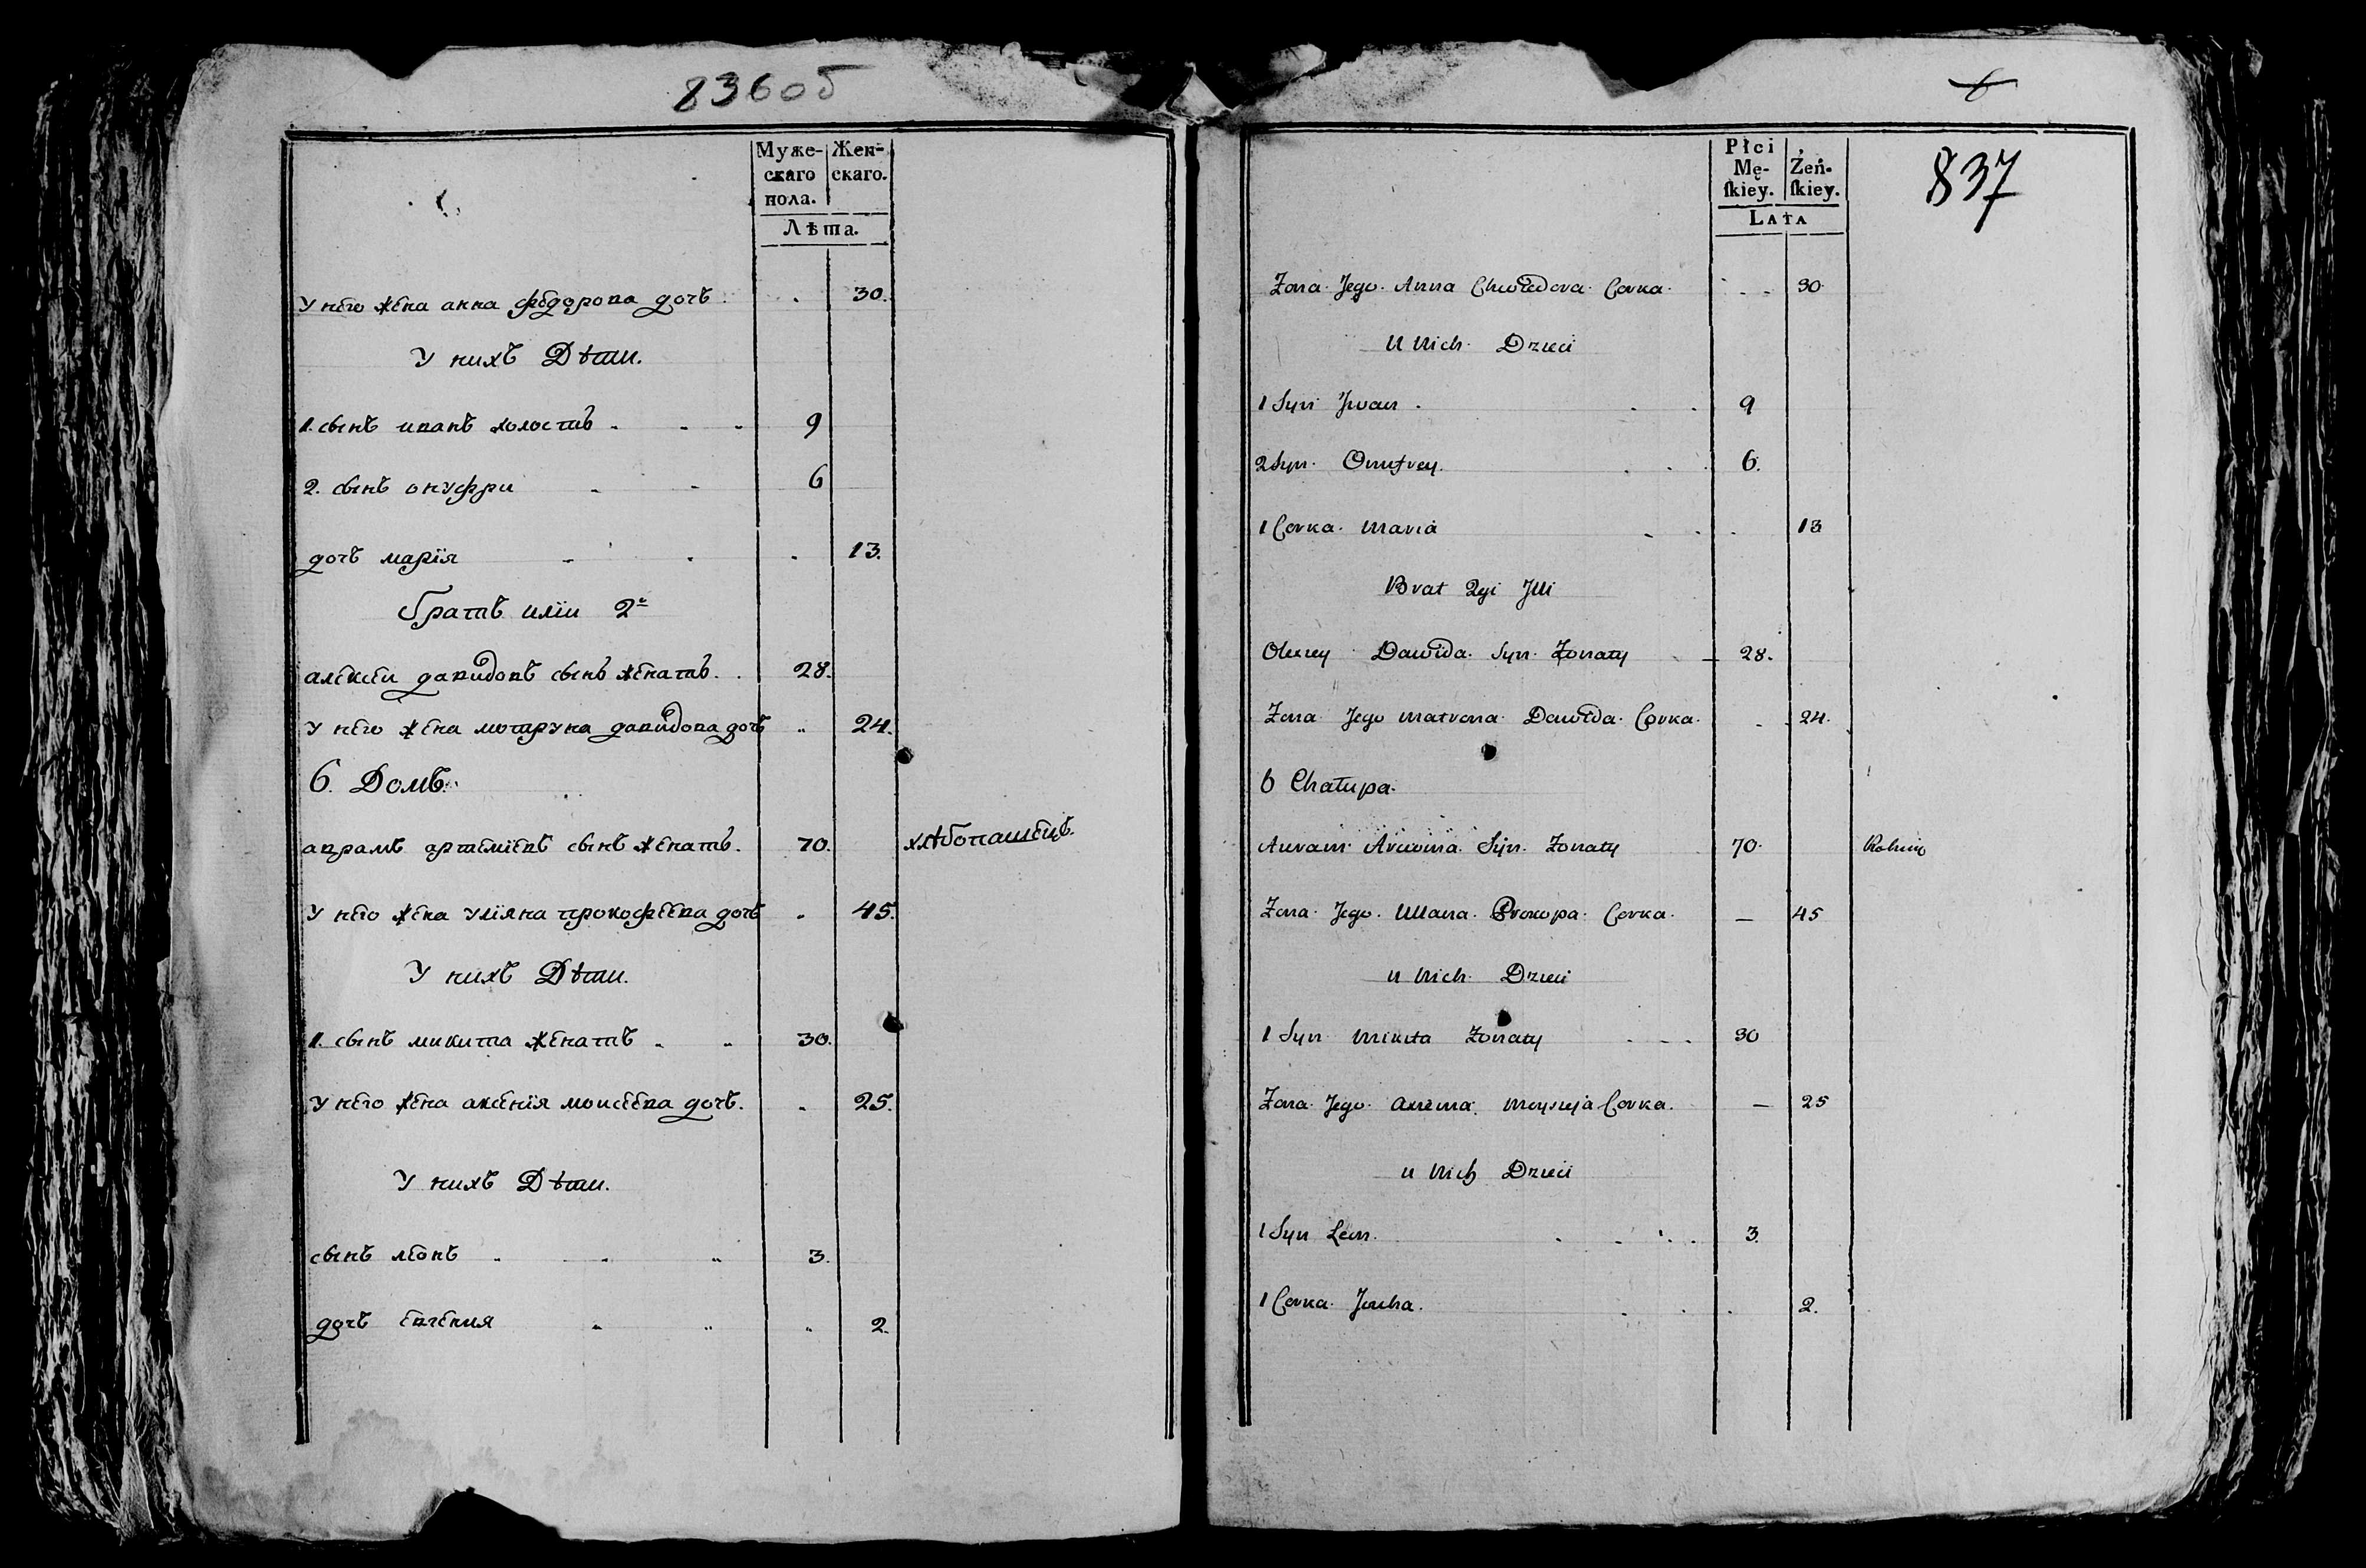 836об
Муже-
скаго
пола.
Жен-
скаго.
Лѣта.
У него жена анна федорова дочь . 30.
У нихъ Дѣти.
1. сынъ иванъ холостъ 9
2. сынъ онуфри 6
дочь марїя 13.
братъ илїи 2й
алексеи давидовъ сынъ женатъ. 28.
У него жена мотруна давидова дочь 24.
6. Домъ.
аврамъ артемїевъ сынъ женатъ. 70. хлѣбопашецъ.
У него жена улїяна прокофеева дочь 45.
У нихъ Дѣти.
1. сынъ микита женатъ 30.
У него жена аксенїя моисеева дочь. 25.
У нихъ Дѣти.
сынъ леонъ 3.
дочь евгения 2.
837
Płci
Mę-
ſkiey.
Żeń-
ſkiey.
Lata
Zona Jego Anna Chwiedora Corka 30.
U Nich Dzieci
1 Syn Jwan 9
2 Syn Onufrey 6.
1 Corka Maria 13
Brat 2gi Jlli
Olexiey Dawida Syn Zonaty 28.
Zona Jego Matrona Dawida Corka 24.
6 Chałupa.
Awram Arcioma Syn Zonaty 70. Rolnik
Zona Jego Ullana Prokopa Corka 45
U Nich Dzieci
1 Syn Mikita Zonaty 30
Zona Jego Axinia Moysieja Corka 25
U Nich Dzieci
1 Syn Leon 3.
1 Corka 2.